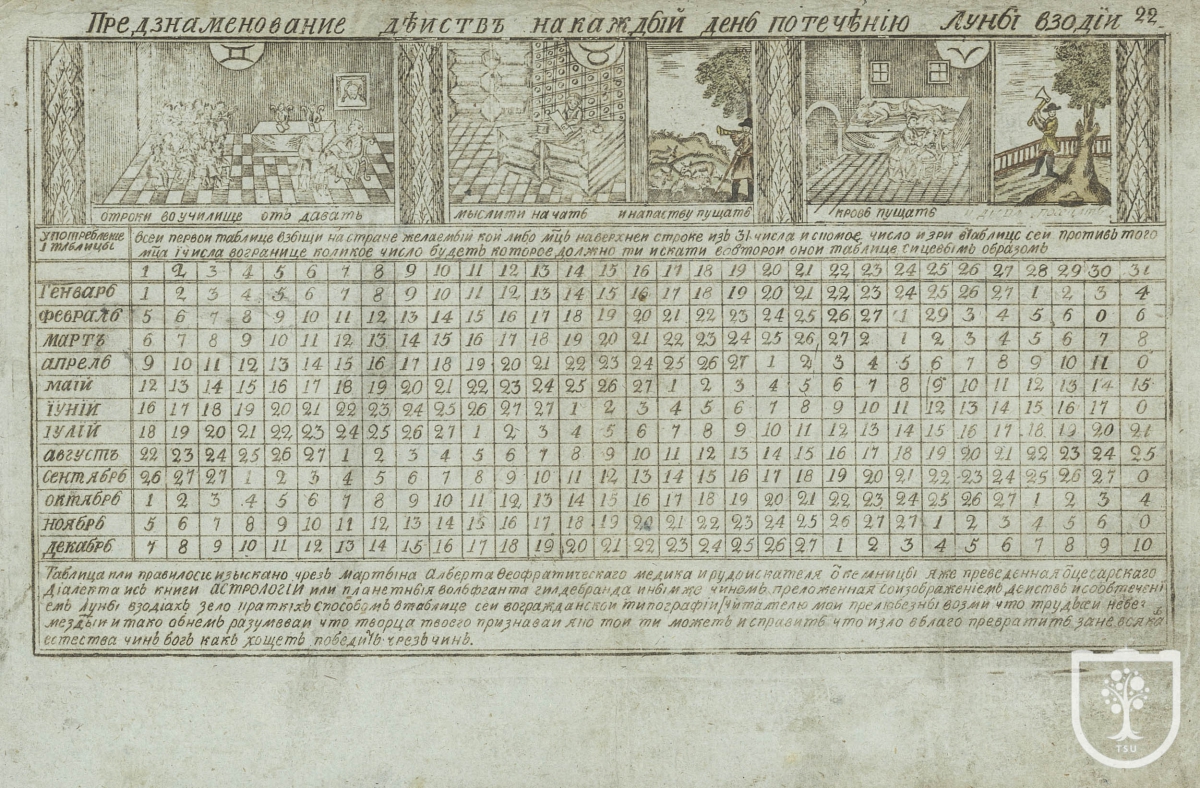 Предзнаменование дѣиствъ накаждый день потечѣнію Луны взодїи 22
отроки воучилище отъ давать
мыслити начать
инапаству пущать
кровь пущать
употребление
1 таблицы
всеи первои таблице взыщи настране желаемый кои либо мцъ наверхнеи строке изъ 31 числа и число изри втаблицѣ сеи противъ того
мца 1 числа вогранице коликое число будетъ которое должно ти искати вовторои онои таблице сицевымъ образомъ
1 2 3 4 5 6 7 8 9 10 11 12 13 14 15 16 17 18 19 20 21 22 23 24 25 26 27 28 29 30 31
Генварь 1 2 3 4 5 6 7 8 9 10 11 12 13 14 15 16 17 18 19 20 21 22 23 24 25 26 27 1 2 3 4
Февраль 5 6 7 8 9 10 11 12 13 14 15 16 17 18 19 20 21 22 23 24 25 26 27 1 29 3 4 5 6 0 6
Мартъ 6 7 8 9 10 11 12 13 14 15 16 17 18 19 20 21 22 23 24 25 26 27 2 1 2 3 4 5 6 7 8
апрель 9 10 11 12 13 14 15 16 17 18 19 20 21 22 23 24 25 26 27 1 2 3 4 5 6 7 8 9 10 11 0
маїй 12 13 14 15 16 17 18 19 20 21 22 23 24 25 26 27 1 2 3 4 5 6 7 8 9 10 11 12 13 14 15
їуніи 16 17 18 19 20 21 22 23 24 25 26 27 27 1 2 3 4 5 6 7 8 9 10 11 12 13 14 15 16 17 0
Іулїй 18 19 20 21 22 23 24 25 26 27 1 2 3 4 5 6 7 8 9 10 11 12 13 14 15 16 17 18 19 20 21
августъ 22 23 24 25 26 27 1 2 3 4 5 6 7 8 9 10 11 12 13 14 15 16 17 18 19 20 21 22 23 24 25
сентябрь 26 27 27 1 2 3 4 5 6 7 8 9 10 11 12 13 14 15 16 17 18 19 20 21 22 23 24 25 26 27 0
октябрь 1 2 3 4 5 6 7 8 9 10 11 12 13 14 15 16 17 18 19 20 21 22 23 24 25 26 27 1 2 3 4
ноябрь 5 6 7 8 9 10 11 12 13 14 15 16 17 18 19 20 21 22 23 24 25 26 27 27 1 2 3 4 5 6 0
декабрь 7 8 9 10 11 12 13 14 15 16 17 18 19 20 21 22 23 24 25 26 27 1 2 3 4 5 6 7 8 9 10
Таблица или правилосие изыскано чрезъ мартына Алберта Ѳеофратическаго медика ирудоискателя ѿкемницы яже преведенная ѿцесарскаго
Діалекта изъ книги АСТРОЛОГІЙ или планетныя волфганга гилдебранда иныи же чиномъ преложенная Соизображеніемъ дѣиствъ исообтечені
емъ Луны взодіахъ зело краткіхъ способомъ втаблице сеи вогражданскои типографіи Чітателю мои прелюбезны возми что трудъ сеи небез
мездыи итако обнемъ разумѣваи что творца твоего признаваи яко тои ти можетъ исправить что изло вблаго превратить зане всяка
естества чинъ богъ какъ хощетъ победитъ чрезъ чинъ.
TSU